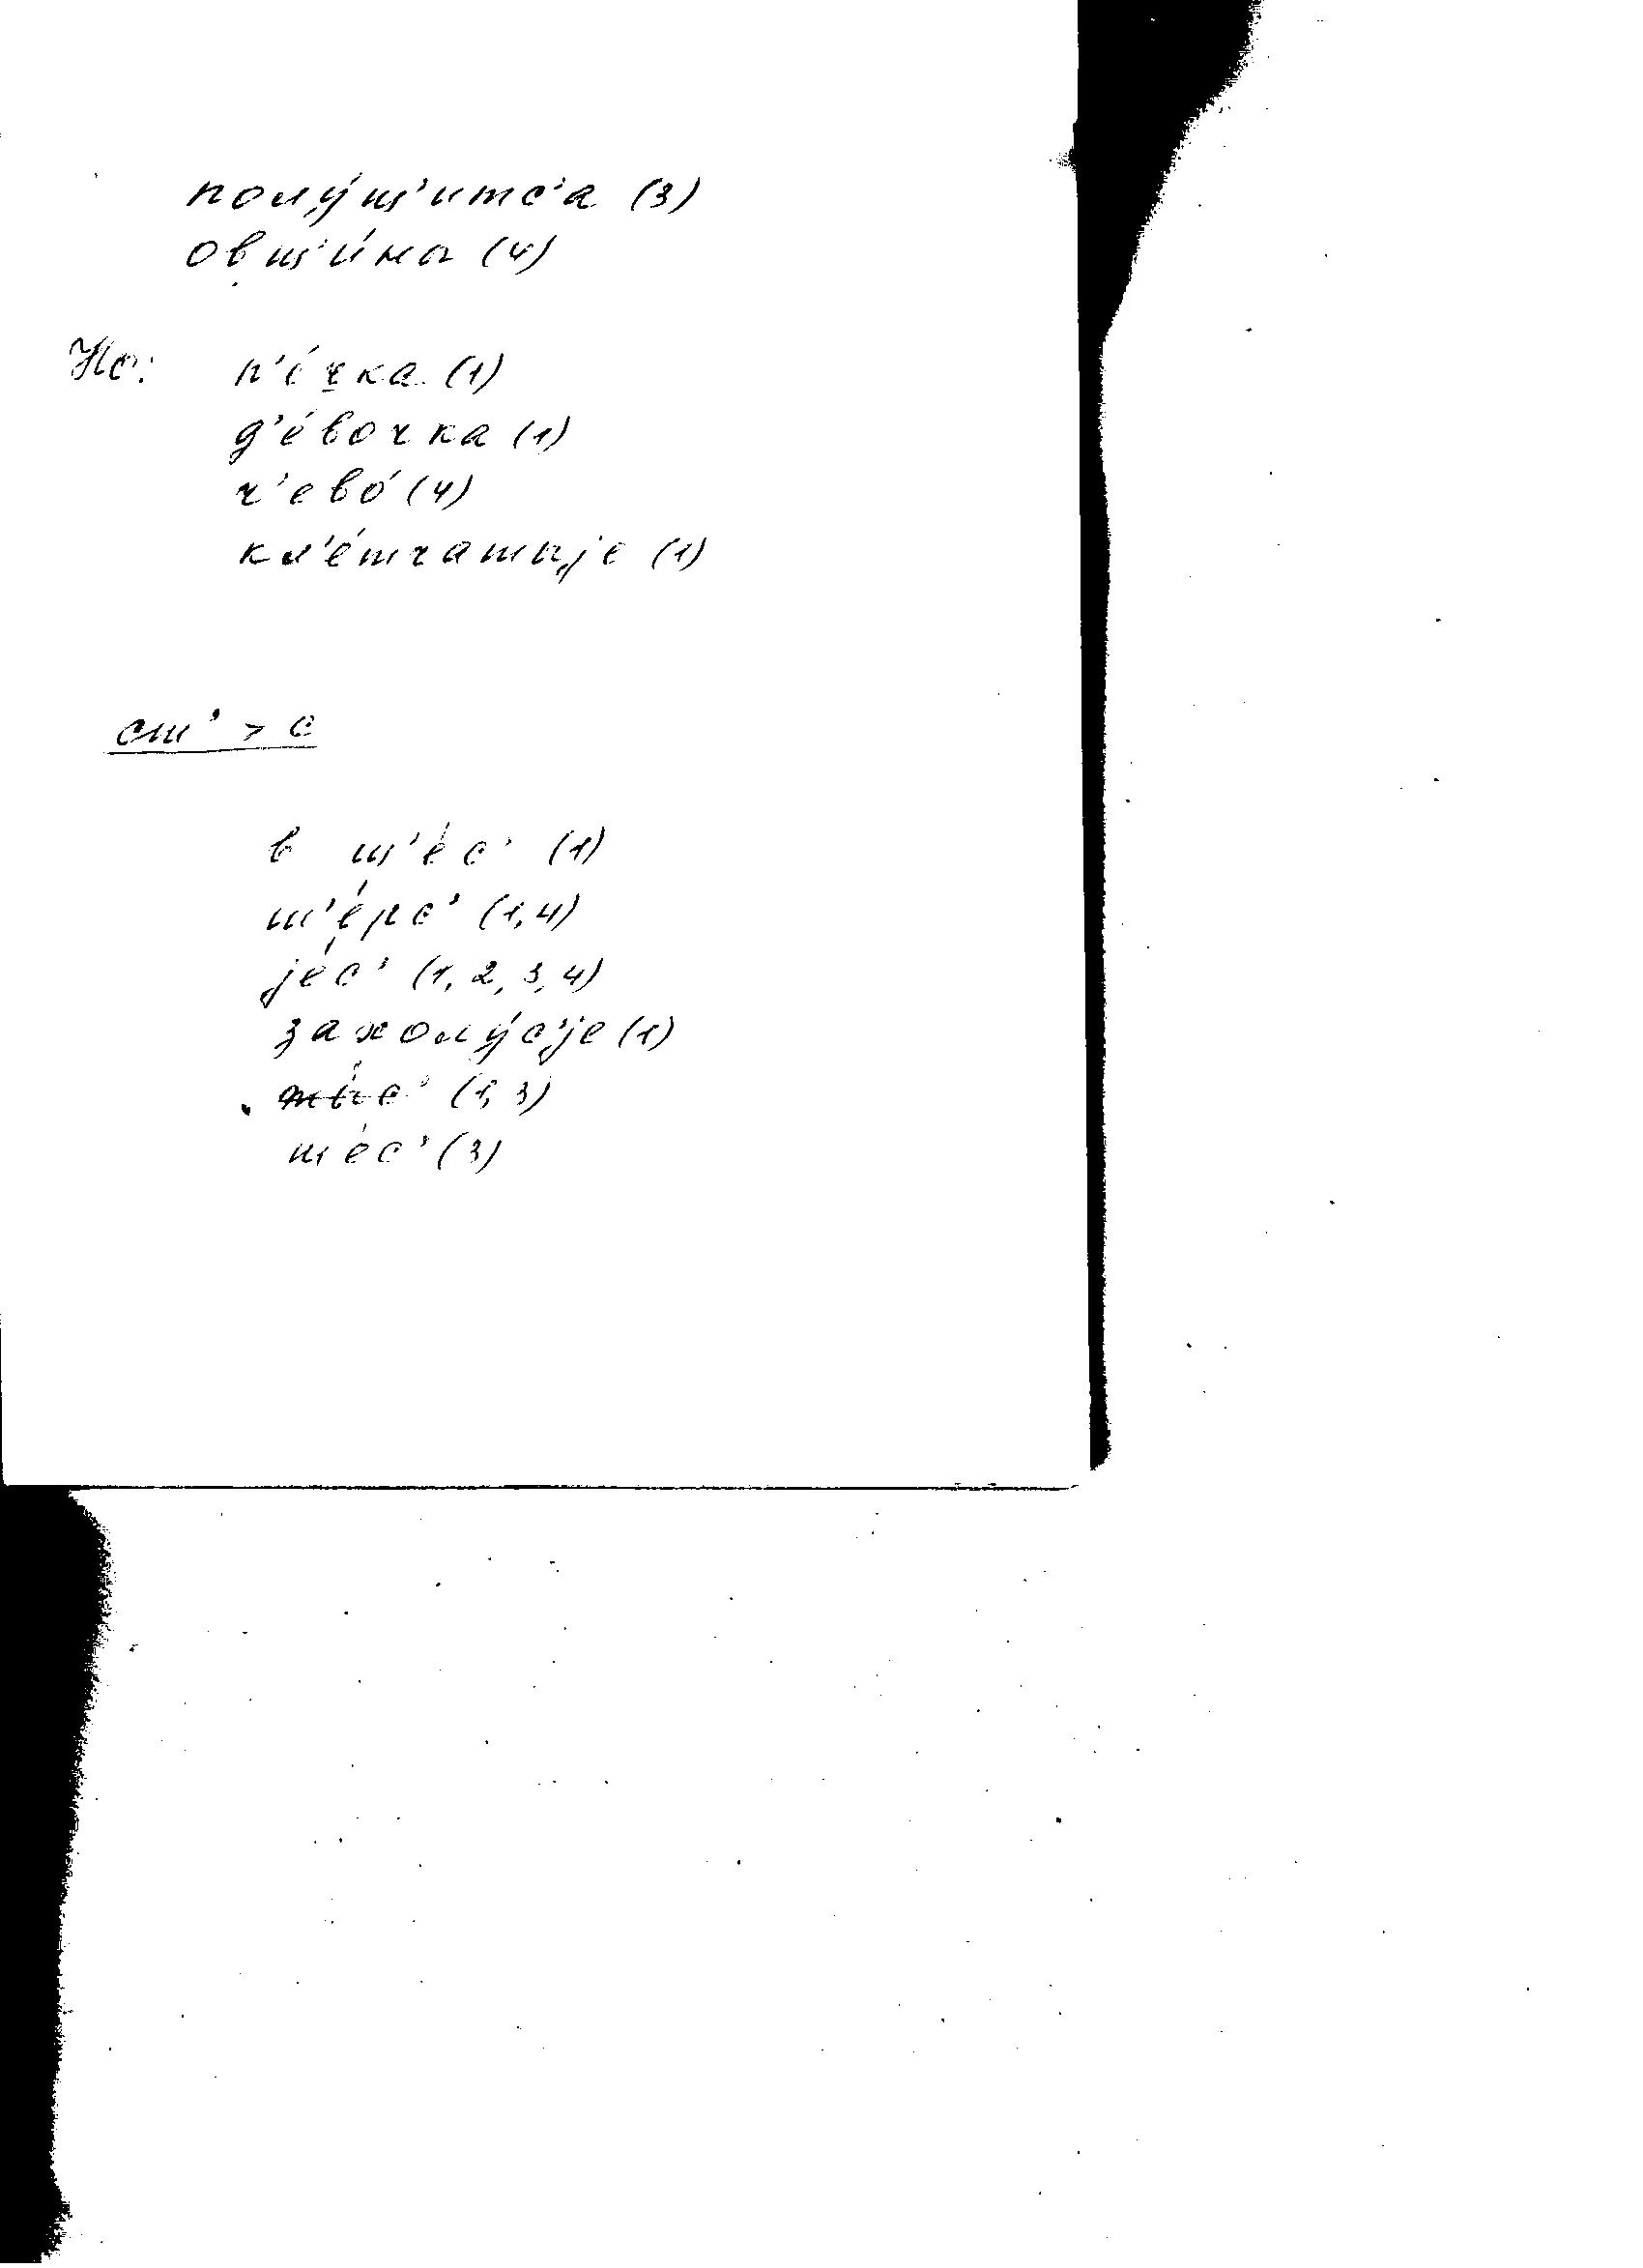 полу́ш'итс'а (3)
овш'и́на (4)
Но: п'е́чка (1)
д'е́вочка (1)
ч'ево́ (4)
кл'е́тчатыjе (1)
ст' > с
в ш'е́с' (1)
ш'е́рс' (1,4)
jе́с' (1, 2, 3, 4)
захолу́с'jе (1)
(1, 3)
ше́с' (3)